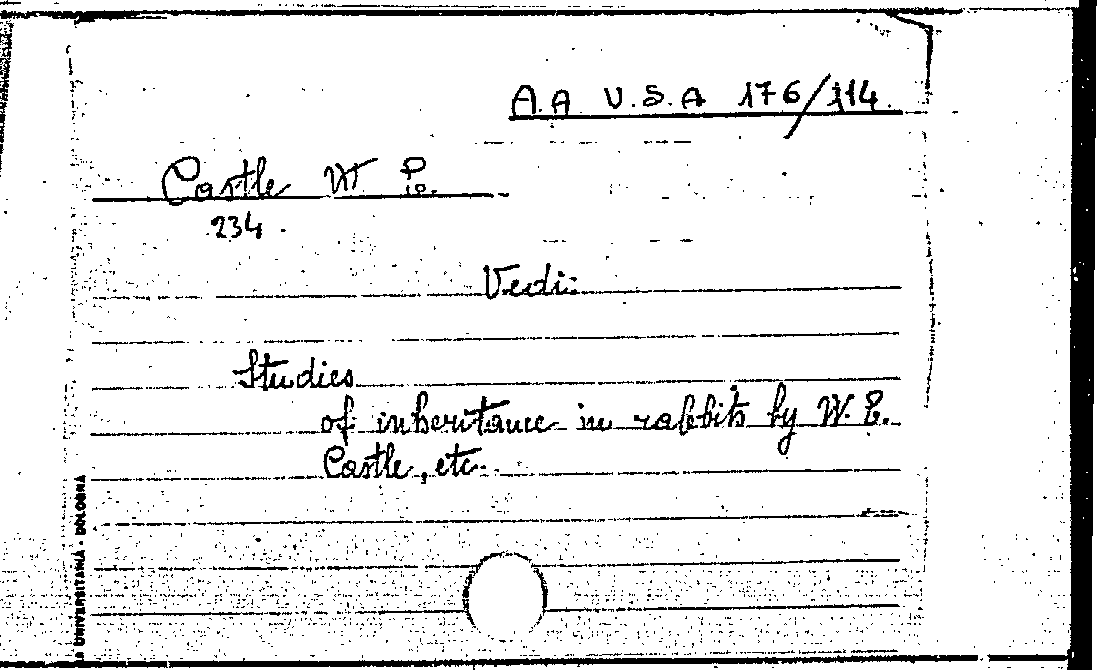 A.A U.S.A 176/114
Castle W E.
234.
Vedi:
Studies
of inheritance in rabbits by W. E.
Castle, etc.
UNIVERSITARIA - BOLOGNA